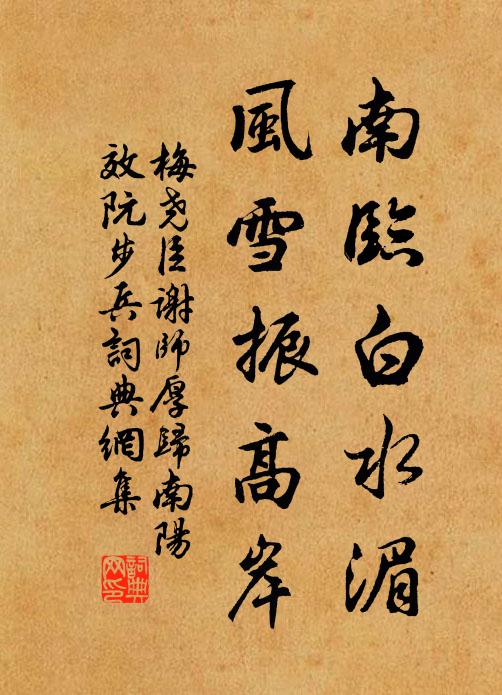 南臨白水湄
風雪振高岸
梅堯臣謝師厚歸南陽
效阮步兵詞典網集
詞典网印